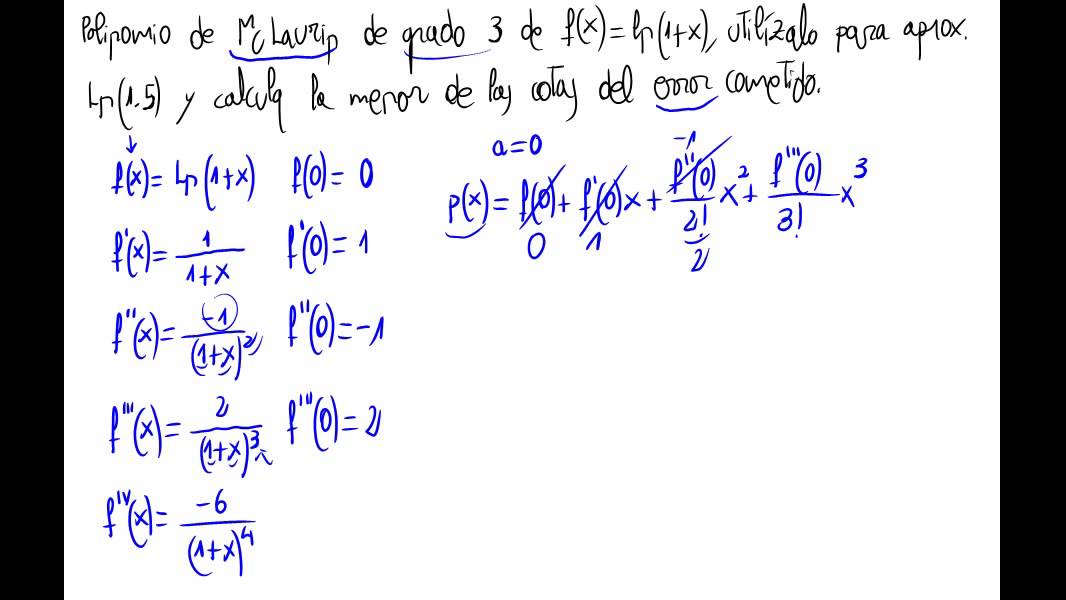 Polinomio de McLaurin de grado 3 de f(x)=ln(1+x), utilízalo para aprox.
Ln(1.5) y calcula la menor de las cotas del error cometido.
a=0
f(x)= Ln(1+x) f(0)= 0
p(x)= f(0)+ f'(0)x + f''(0)/2! x² + f'''(0)/3! x³
0 1 -1 2
f'(x)= 1/(1+x) f'(0)= 1
f''(x)= -1/(1+x)² f''(0)=-1
f'''(x)= 2/(1+x)³ f'''(0)= 2
f^IV(x)= -6/(1+x)⁴